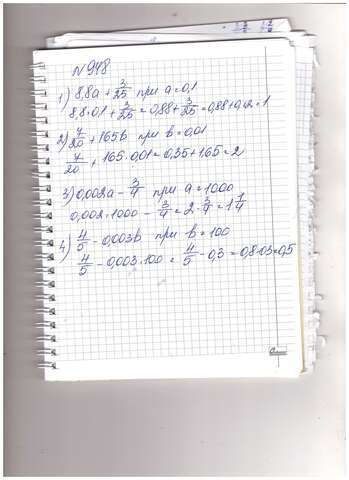 №948
1) 8,8a + 3/25 при a = 0,1
8,8·0,1 + 3/25 = 0,88 + 3/25 = 0,88 + 0,12 = 1
2) 7/20 + 165b при b = 0,01
7/20 + 165·0,01 = 0,35 + 1,65 = 2
3) 0,002a - 3/4 при a = 1000
0,002·1000 - 3/4 = 2 - 3/4 = 1 1/4
4) 4/5 - 0,003b при b = 100
4/5 - 0,003·100 = 4/5 - 0,3 = 0,8 - 0,3 = 0,5